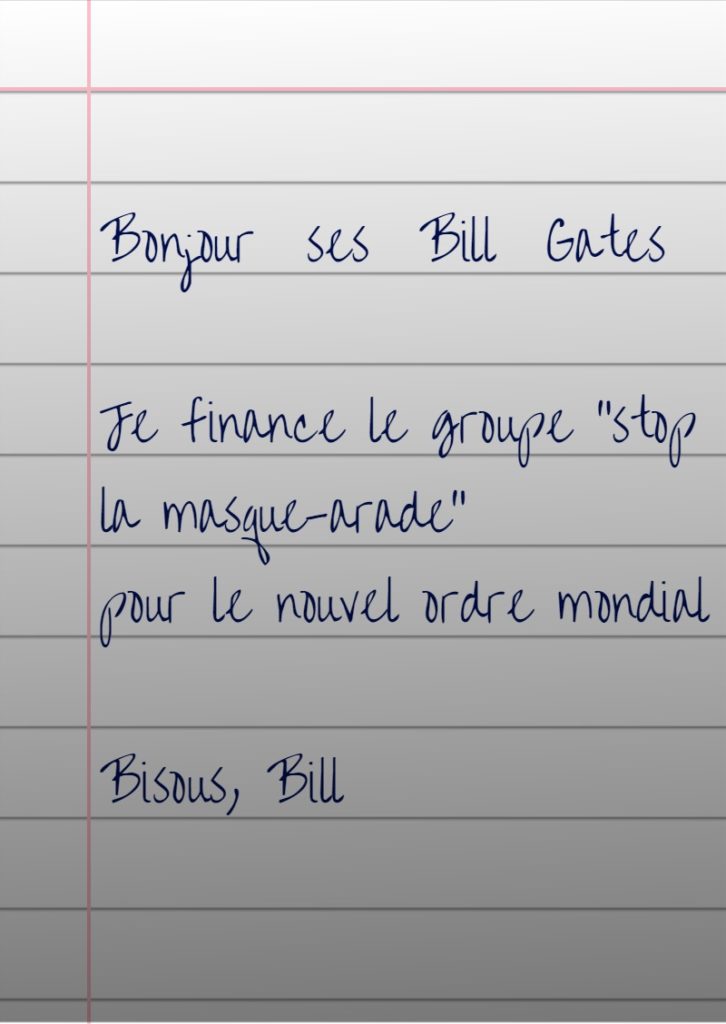 Bonjour ses Bill Gates
Je finance le groupe "stop
la masque-arade"
pour le nouvel ordre mondial
Bisous, Bill